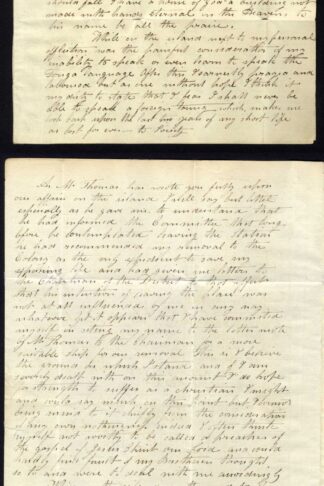 should fall I have a home of God a building not
made with hands eternal in the Heavens to
his name be all the praise.
While on the island next to my personal
affliction was the painful consideration of my
inability to speak or even learn to speak the
Tonga language. Often have I earnestly prayed and
laboured but as one without hope I think it
my duty to state that I fear I shall never be
able to speak a foreign tongue which makes me
look back upon the last two years of my short life
as lost for ever to Society
As Mr Thomas has wrote you fully upon
our affairs on the island I will say but little
especially as he gave me to understand that
he had informed the Committee that long
before he contemplated leaving the station
he had recommended my removal to the
Colony as the only expedient to save my
expiring life and had given me letters to
the Chairman of the District
that his intention of leaving the place was
not at all influenced by me in any way
whatever yet it appears that I have committed
myself in setting my name to the letter with
Mr Thomas to the Chairman for a more
suitable ship for our removal This is I believe
the ground on which I stand and if I am
severely dealt with on this account I do hope
for strength to suffer as a christian I might
say much on this point but
being mind to it chiefly from the consideration
of my own nothingness indeed I often think
myself not worthy to be called a preacher of
the gospel of Jesus Christ our Lord and could
hardly find fault if my Brethren thought
so to and were to deal with me accordingly